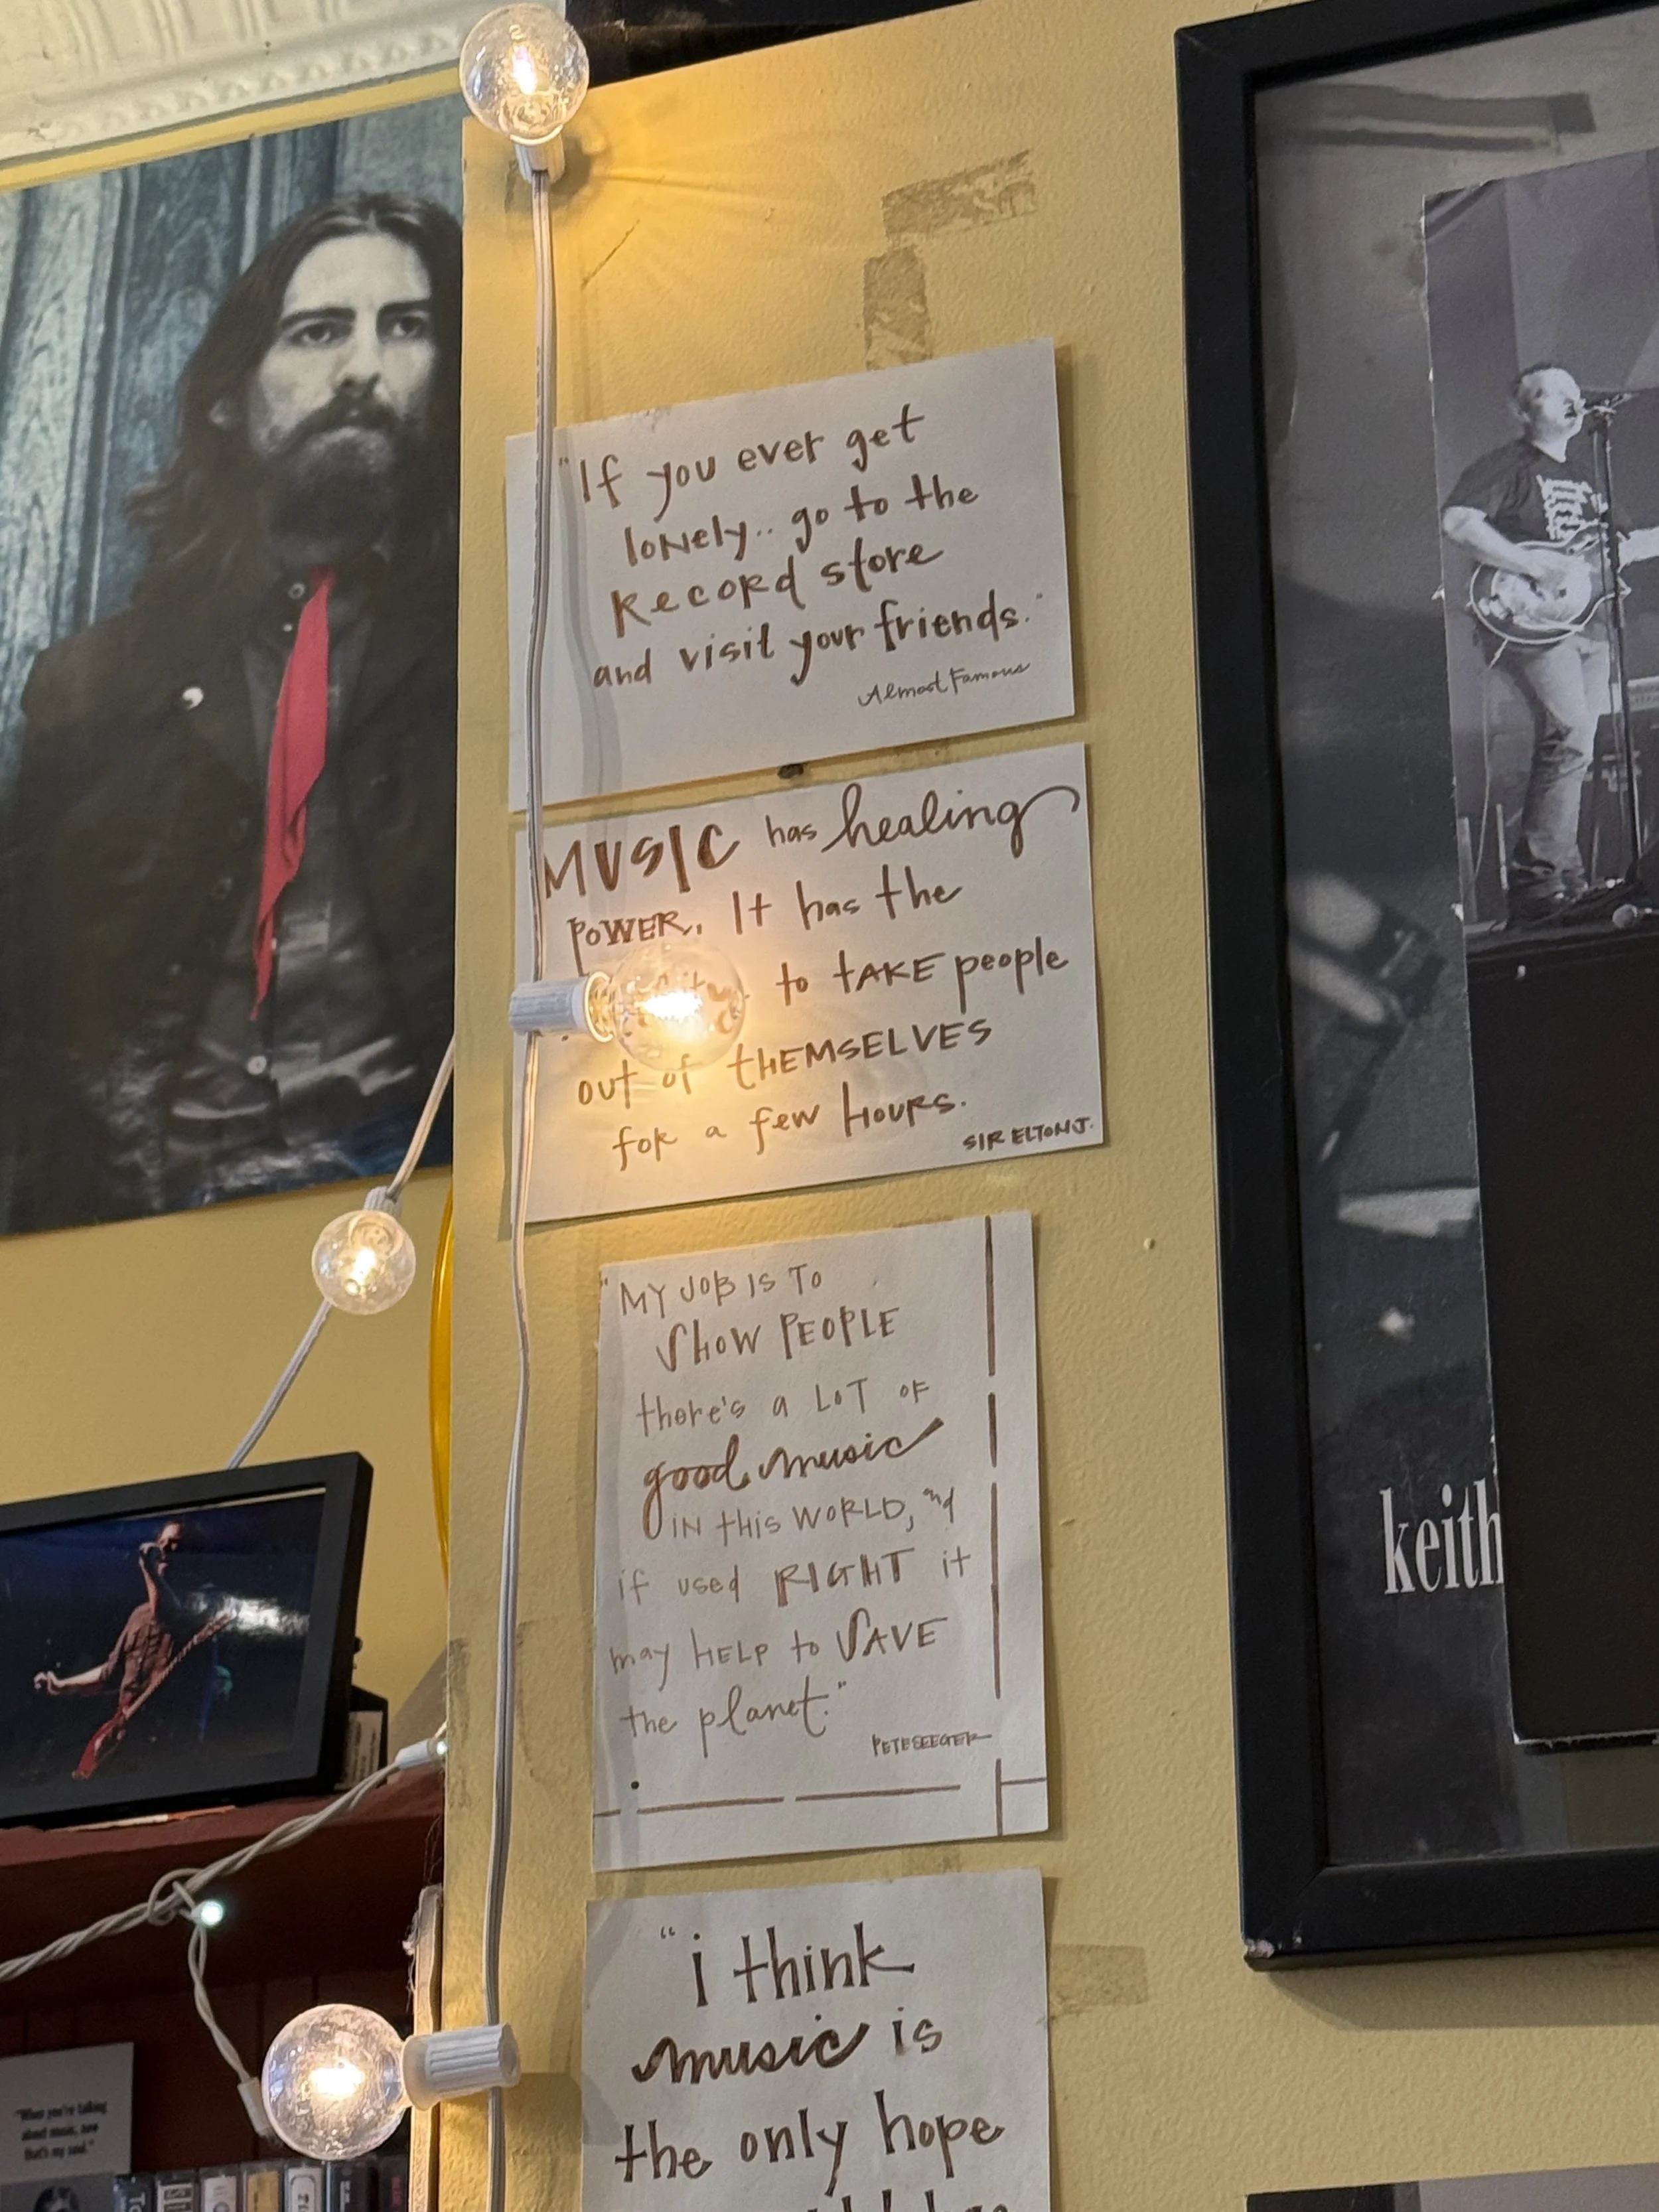 "If you ever get
lonely.. go to the
Record store
and visit your friends."
Almost Famous
MUSIC has healing
POWER. It has the
to TAKE people
out of THEMSELVES
for a few HOURS.
SIR ELTON J.
"MY JOB IS TO
SHOW PEOPLE
there's a LOT OF
good music
IN this WORLD, and
if used RIGHT it
may HELP to SAVE
the planet."
PETE SEEGER
"i think
music is
the only hope
keith
"When you're talking
about music, now
that's my soul."